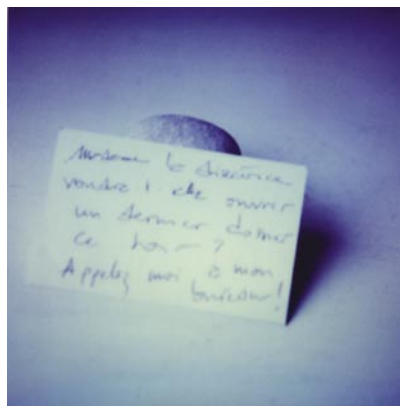 Madame la directrice
voudra t elle ouvrir
un dernier dossier
ce soir ?
Appelez moi à mon
bureau !